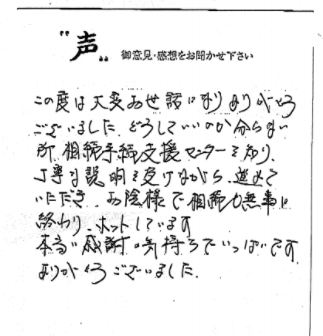 "声" 御意見・感想をお聞かせ下さい
この度は大変お世話になりありがとう
ございました。どうしていいのか分らない
所、相続手続支援センターを知り、
丁寧な説明を受けながら、進めて
いただき、お陰様で相続も無事に
終わり、ホットしています
本当に感謝の気持ちでいっぱいです
ありがとうございました。